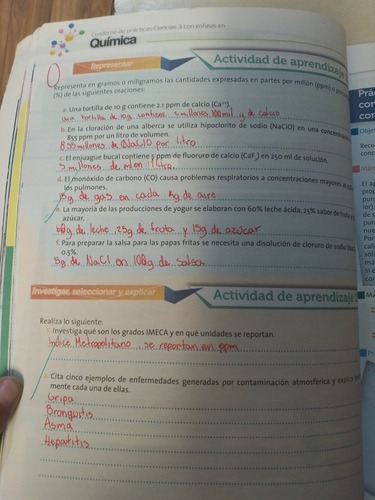 Cuaderno de prácticas Ciencias 3 con énfasis en
Química
Representar
Actividad de aprendizaje
Representa en gramos o miligramos las cantidades expresadas en partes por millón (ppm) o
(%) de las siguientes oraciones:
a. Una tortilla de 10 g contiene 2.1 ppm de calcio (Ca²⁺).
una tortilla de 10g contiene 2 millones 100mil g de calcio
b. En la cloración de una alberca se utiliza hipoclorito de sodio (NaClO) en una
855 ppm por un litro de volumen.
855 millones de NaClO por litro
c. El enjuague bucal contiene 5 ppm de fluoruro de calcio (CaF₂) en 250 ml de solución.
5 millones de
d. El monóxido de carbono (CO) causa problemas respiratorios a concentraciones mayores
los pulmones.
de gas en cada kg de aire
e. La mayoría de las producciones de yogur se elaboran con 60% leche ácida, 25% sabor de fruta y
azúcar.
60g de leche, 25g de fruto y 15g de azúcar
f. Para preparar la salsa para las papas fritas se necesita una disolución de cloruro de sodio
0.5%.
5g de NaCl en 100g de salsa
Investigar, seleccionar y explicar
Actividad de aprendizaje
Realiza lo siguiente:
Investiga qué son los grados IMECA y en qué unidades se reportan.
Indice Metropolitano .. se reportan en ppm
Cita cinco ejemplos de enfermedades generadas por contaminación atmosférica y explica
mente cada una de ellas.
Gripa
Bronquitis
Asma
Hepatitis